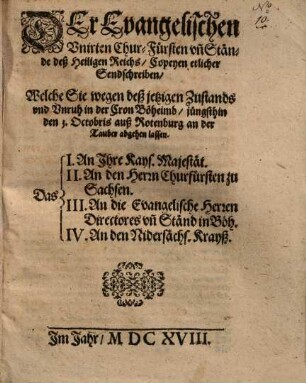 No
10.
DEr Evangelischen
Vnirten Chur-Fürsten vñ Stän-
de deß Heiligen Reichs/ Copeyen etlicher
Sendschreiben/
Welche Sie wegen deß jetzigen Zustands
vnd Vnruh in der Cron Böheimb/ jüngsthin
den 3. Octobris auß Rotenburg an der
Tauber abgehen lassen.
Das
I. An Ihre Kays. Majestät.
II. An den Herrn Churfürsten zu
Sachsen.
III. An die Evangelische Herren
Directores vñ Ständ in Böh.
IV. An den Nidersächs. Krayß.
Im Jahr/ M DC XVIII.